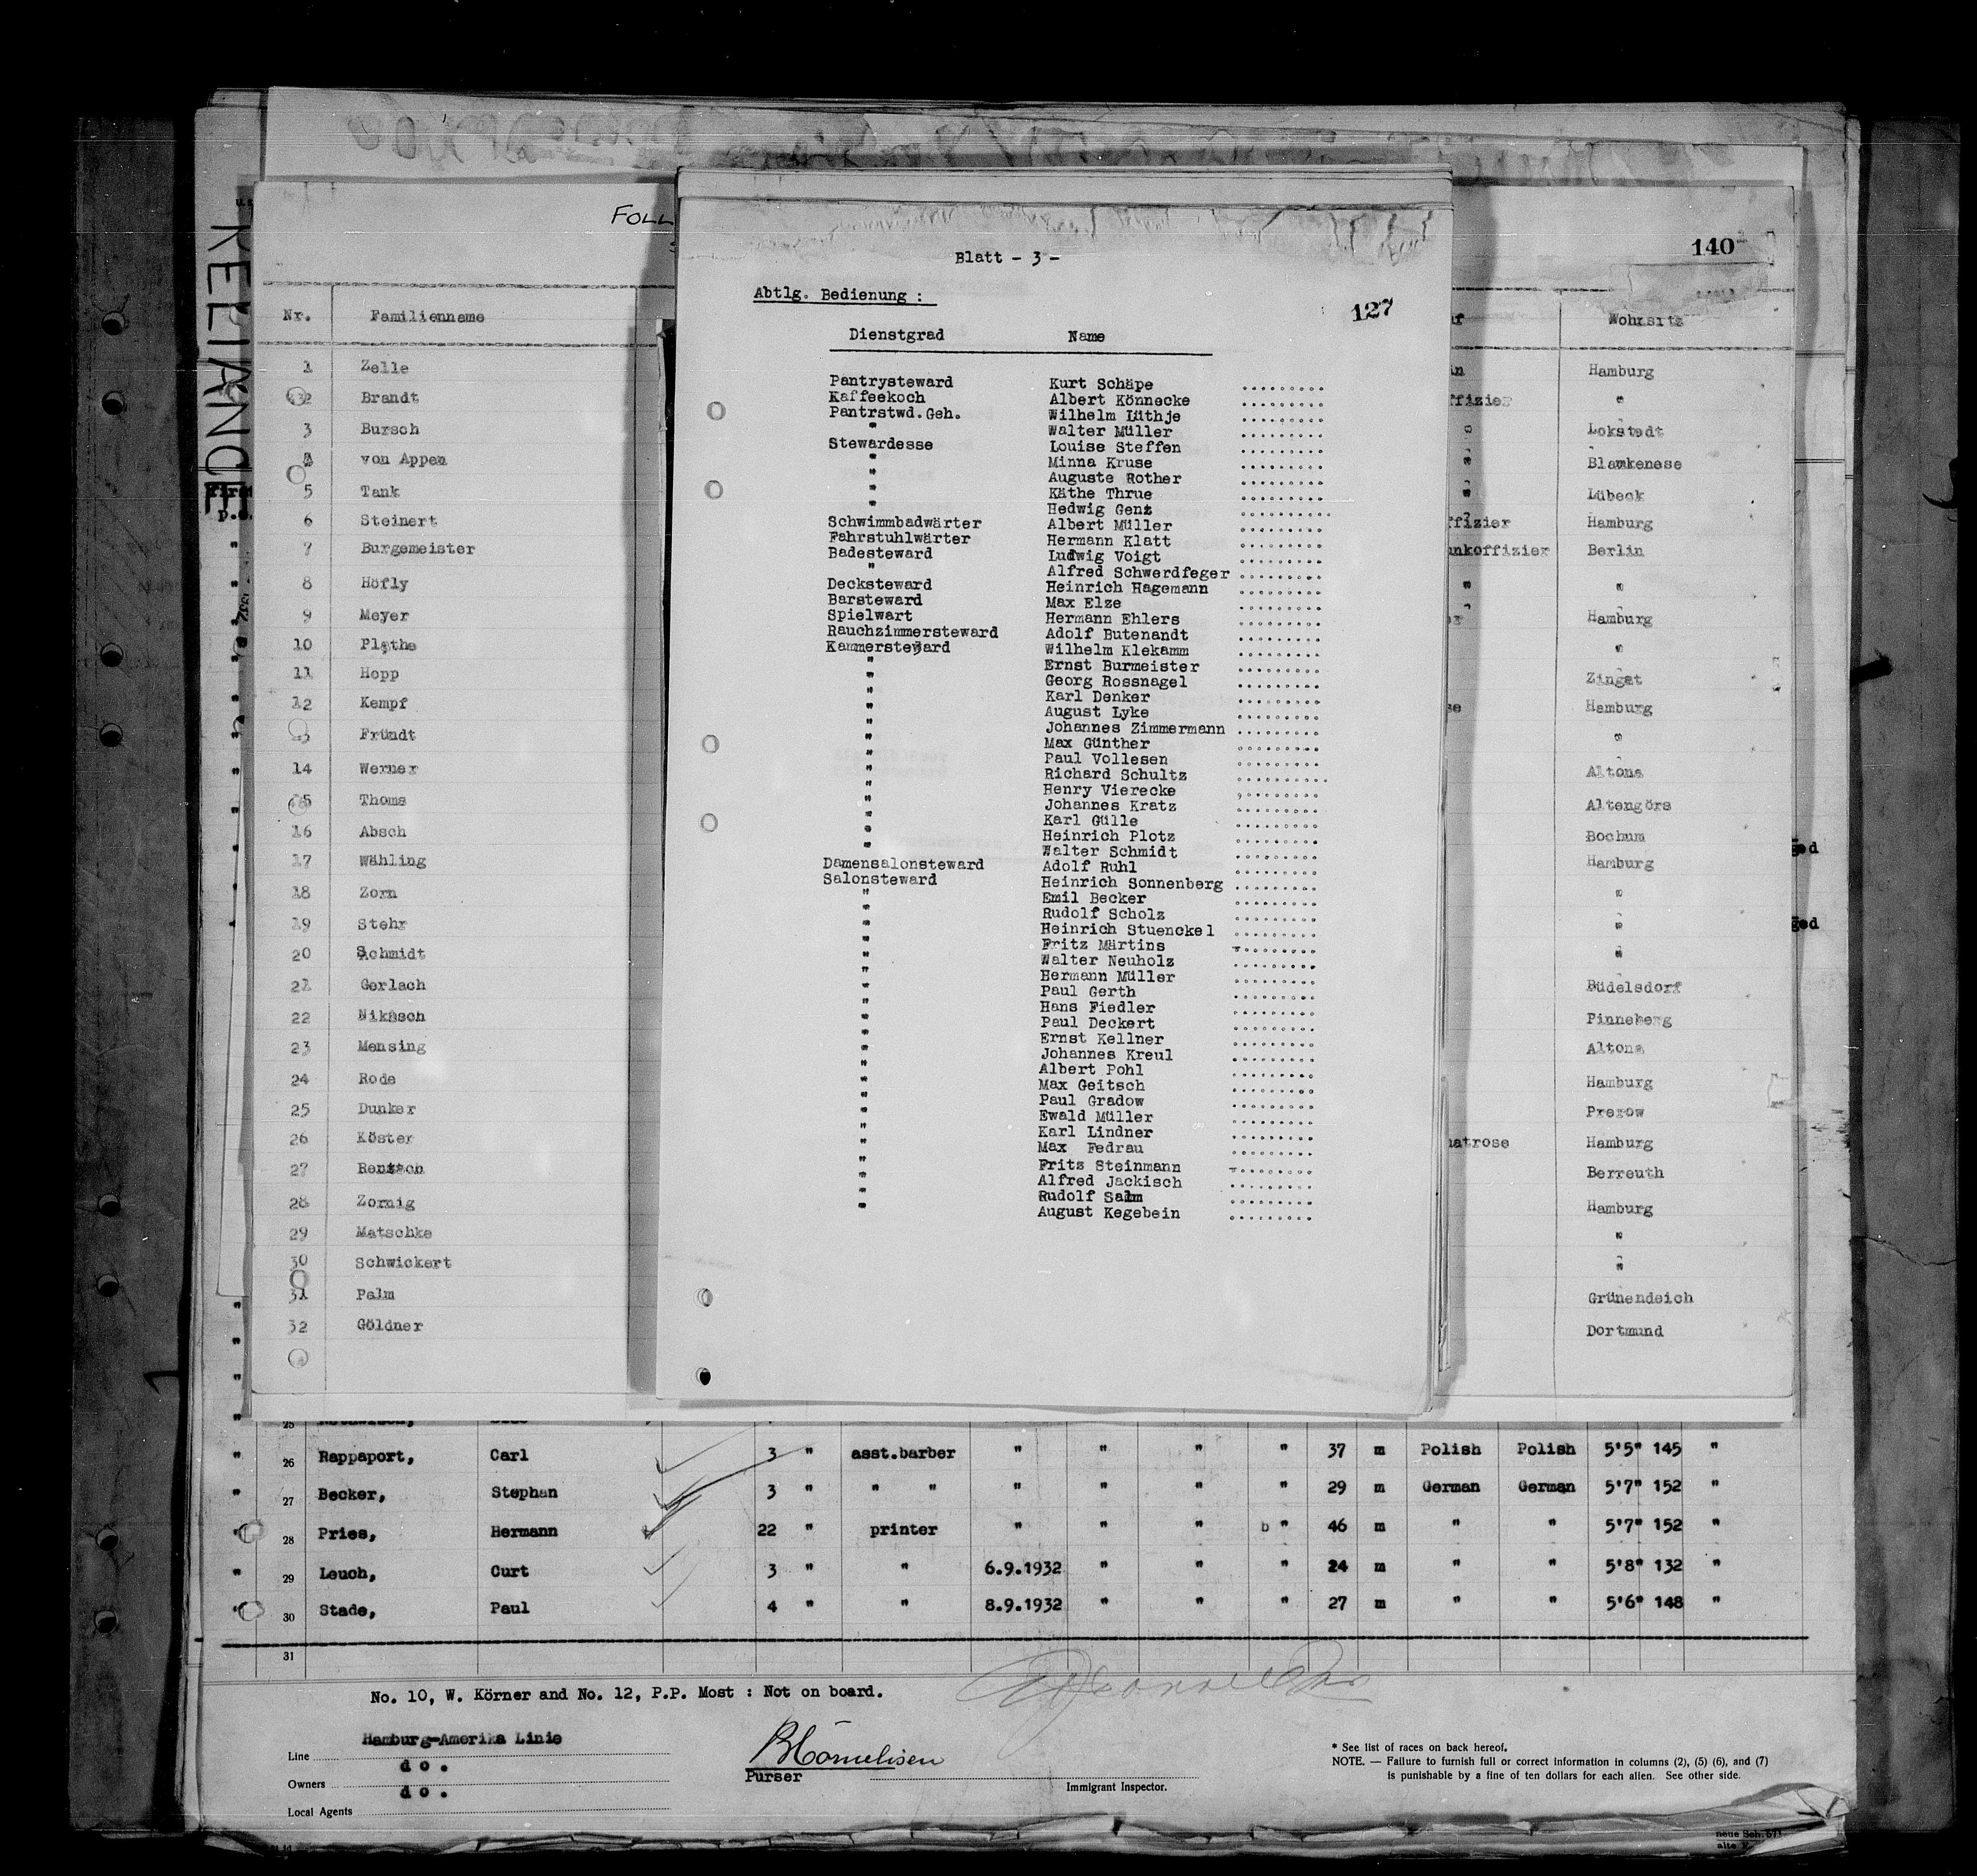 RELIANCE
FOLL
140
Nr. Familienname
1 Zelle
2 Brandt
3 Bursch
4 von Appen
5 Tank
6 Steinert
7 Burgemeister
8 Höfly
9 Meyer
10 Plathe
11 Hopp
12 Kempf
13 Fründt
14 Werner
15 Thoms
16 Absch
17 Wähling
18 Zorn
19 Stehr
20 Schmidt
21 Gerlach
22 Nikåsch
23 Mensing
24 Rode
25 Dunker
26 Köster
27 Rentsch
28 Zornig
29 Matschke
30 Schwickert
31 Palm
32 Göldner
Blatt - 3 -
Abtlg. Bedienung :
127
Dienstgrad Name
Pantrysteward Kurt Schäpe .........
Kaffeekoch Albert Könnecke .........
Pantrstwd.Geh. Wilhelm Lüthje .........
" Walter Müller .........
Stewardesse Louise Steffen .........
" Minna Kruse .........
" Auguste Rother .........
" Käthe Thrue .........
" Hedwig Genz .........
Schwimmbadwärter Albert Müller .........
Fahrstuhlwärter Hermann Klatt .........
Badesteward Ludwig Voigt .........
" Alfred Schwerdfeger .........
Decksteward Heinrich Hagemann .........
Barsteward Max Elze .........
Spielwart Hermann Ehlers .........
Rauchzimmersteward Adolf Butenandt .........
Kammersteward Wilhelm Klekamm .........
" Ernst Burmeister .........
" Georg Rossnagel .........
" Karl Denker .........
" August Lyke .........
" Johannes Zimmermann .........
" Max Günther .........
" Paul Vollesen .........
" Richard Schultz .........
" Henry Vierecke .........
" Johannes Kratz .........
" Karl Gülle .........
" Heinrich Plotz .........
" Walter Schmidt .........
Damensalonsteward Adolf Ruhl .........
Salonsteward Heinrich Sonnenberg .........
" Emil Becker .........
" Rudolf Scholz .........
" Heinrich Stuenckel .........
" Fritz Märtins .........
" Walter Neuholz .........
" Hermann Müller .........
" Paul Gerth .........
" Hans Fiedler .........
" Paul Deckert .........
" Ernst Kellner .........
" Johannes Kreul .........
" Albert Pohl .........
" Max Geitsch .........
" Paul Gradow .........
" Ewald Müller .........
" Karl Lindner .........
" Max Fedrau .........
" Fritz Steinmann .........
" Alfred Jackisch .........
" Rudolf Salm .........
" August Kegebein .........
Wohnsitz
Hamburg
ffizier "
" Lokstedt
" Blankenese
" Lübeck
ffizier Hamburg
unkoffizier Berlin
" "
Hamburg
"
Zingst
Hamburg
"
Altona
Altengörs
Bochum
Hamburg
"
"
"
Büdelsdorf
Pinneberg
Altona
Hamburg
Prerow
matrose Hamburg
Berreuth
Hamburg
"
"
Grünendeich
Dortmund
" 26 Rappaport, Carl 3 " asst.barber " " " " 37 m Polish Polish 5'5" 145 "
" 27 Becker, Stephan 3 " " " " " " " 29 m German German 5'7" 152 "
" 28 Pries, Hermann 22 " printer " " " b " 46 m " " 5'7" 152 "
" 29 Leuch, Curt 3 " " 6.9.1932 " " " 24 m " " 5'8" 132 "
" 30 Stade, Paul 4 " " 8.9.1932 " " " 27 m " " 5'6" 148 "
31
No. 10, W. Körner and No. 12, P.P. Most : Not on board.
Line Hamburg-Amerika Linie
Owners d o .
Local Agents d o .
Purser
Immigrant Inspector.
* See list of races on back hereof.
NOTE. — Failure to furnish full or correct information in columns (2), (5) (6), and (7)
is punishable by a fine of ten dollars for each alien. See other side.